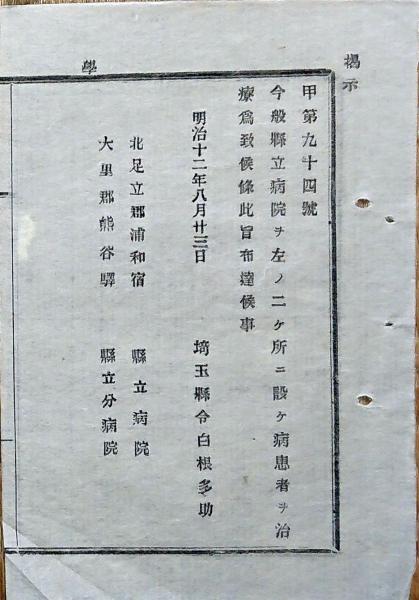 揭示
甲第九十四號
今般縣立病院ヲ左ノ二ケ所ニ設ケ病患者ヲ治
療爲致候條此旨布達候事
明治十二年八月廿三日　埼玉縣令白根多助
北足立郡浦和宿　縣立病院
大里郡熊谷驛　縣立分病院
學